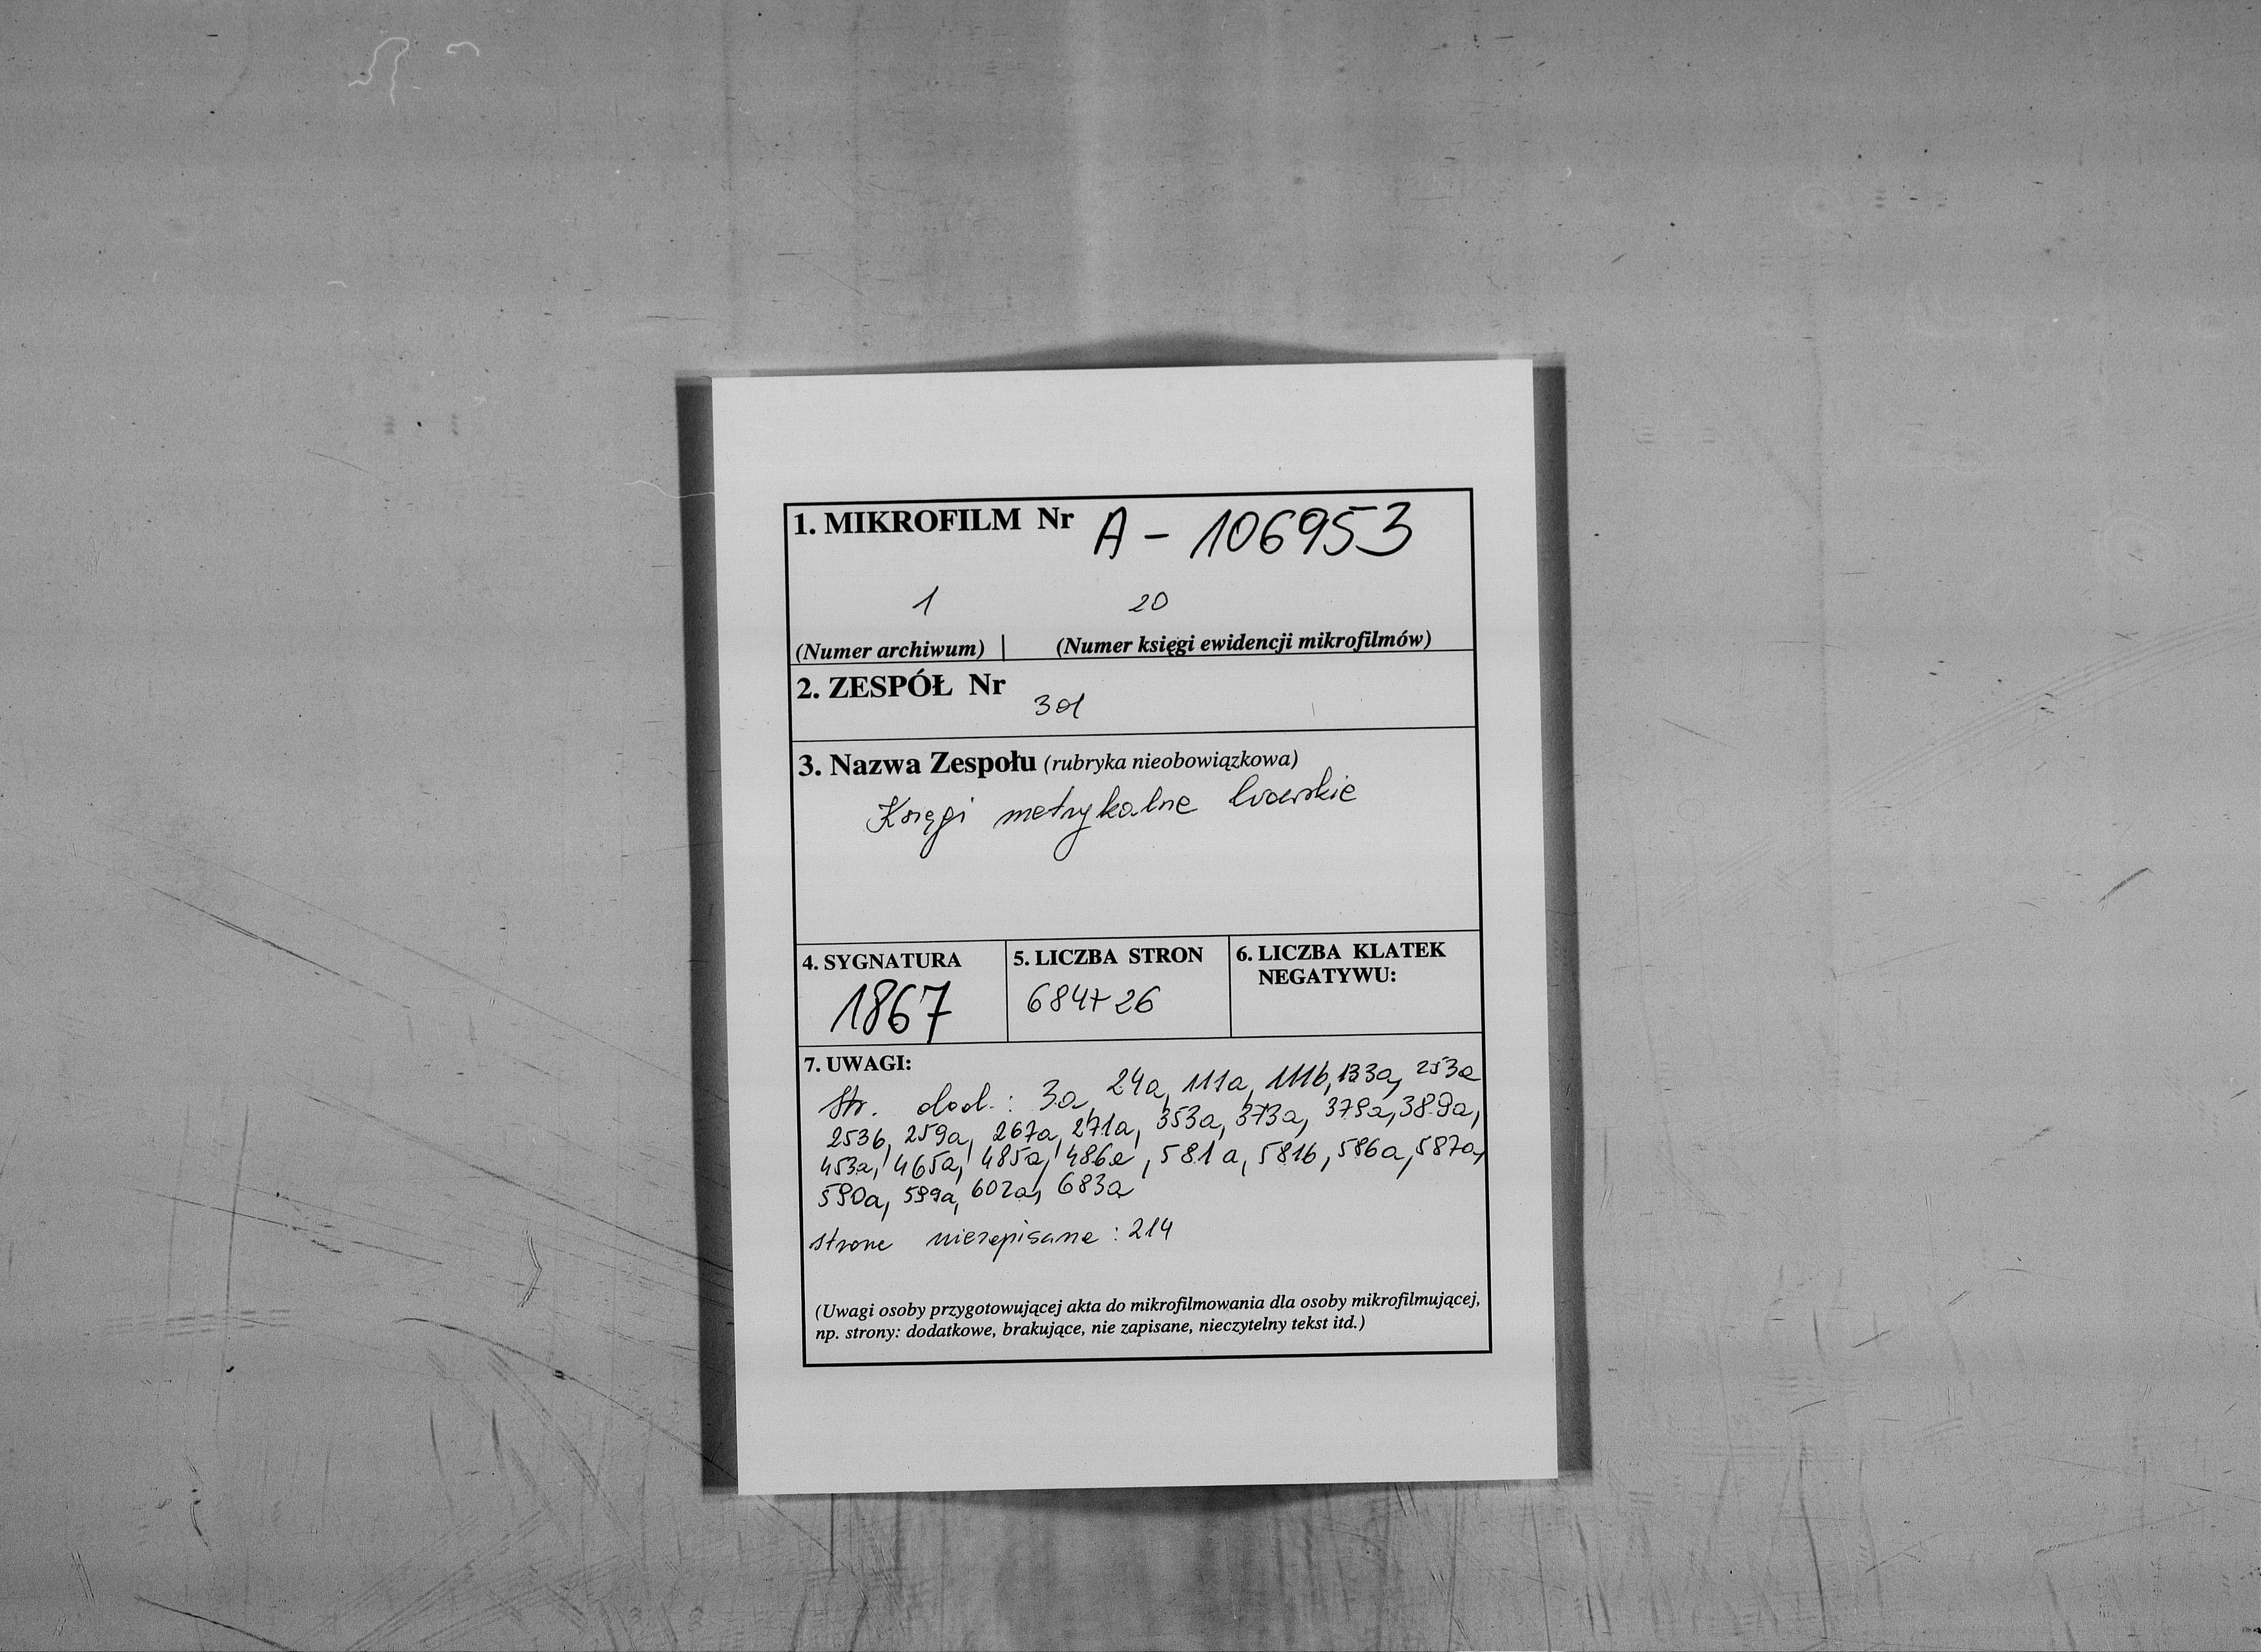 1. MIKROFILM Nr A - 106953
1 20
(Numer archiwum) | (Numer księgi ewidencji mikrofilmów)
2. ZESPÓŁ Nr 301
3. Nazwa Zespołu (rubryka nieobowiązkowa)
Księgi metrykalne lwowskie
4. SYGNATURA
1867
5. LICZBA STRON
684+26
6. LICZBA KLATEK
NEGATYWU:
7. UWAGI:
Str. dod.: 3a, 24a, 111a, 111b, 133a, 253a
253b, 259a, 267a, 271a, 353a, 373a, 379a, 389a,
453a, 465a, 485a, 486a, 581a, 581b, 586a, 587a,
590a, 599a, 602a, 683a
strone niezapisane: 214
(Uwagi osoby przygotowującej akta do mikrofilmowania dla osoby mikrofilmującej,
np. strony: dodatkowe, brakujące, nie zapisane, nieczytelny tekst itd.)